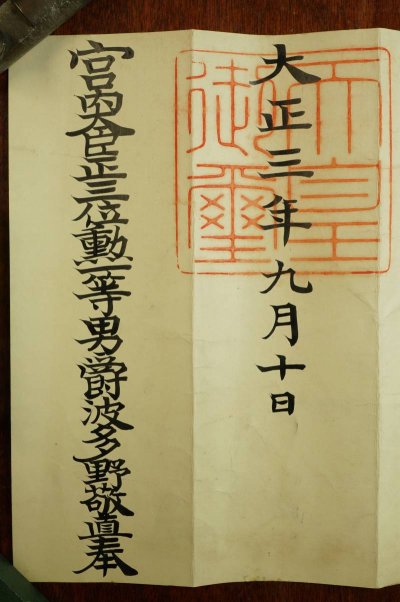 天皇御璽
大正三年九月十日
宮内大臣正三位勲一等男爵波多野敬直奉